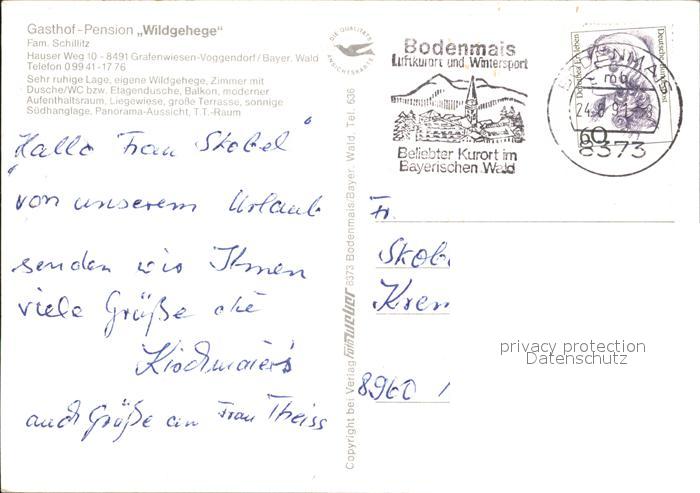 Gasthof-Pension „Wildgehege“
Fam. Schillitz
Hauser Weg 10 - 8491 Grafenwiesen-Voggendorf / Bayer. Wald
Telefon 0 99 41 - 17 76
Sehr ruhige Lage, eigene Wildgehege, Zimmer mit
Dusche/WC bzw. Etagendusche, Balkon, moderner
Aufenthaltsraum, Liegewiese, große Terrasse, sonnige
Südhanglage, Panorama-Aussicht, T.T.-Raum
DIE QUALITÄTS
ANSICHTSKARTE
Bodenmais
Luftkurort und Wintersport
Beliebter Kurort im
Bayerischen Wald
BODENMAIS
8373
60
Deutsche Bundespost
Hallo Frau Skobel
von unserem Urlaub
senden wir Ihnen
viele Grüße die
auch Grüße an Frau Theiss
Copyright bei Verlag foto weber 8373 Bodenmais/Bayer. Wald, Tel. 636
Fr.
Skob
Krem
8960
privacy protection
Datenschutz